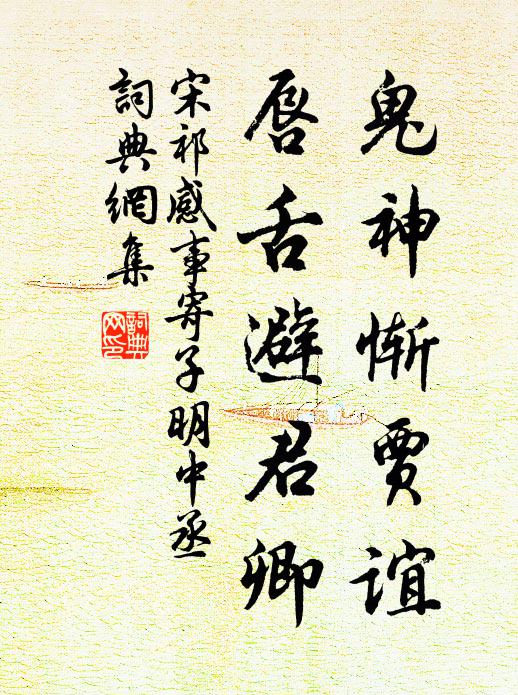 鬼神慚賈誼
唇舌避君卿
宋祁感事寄子明中丞
詞典網集
詞典
网印